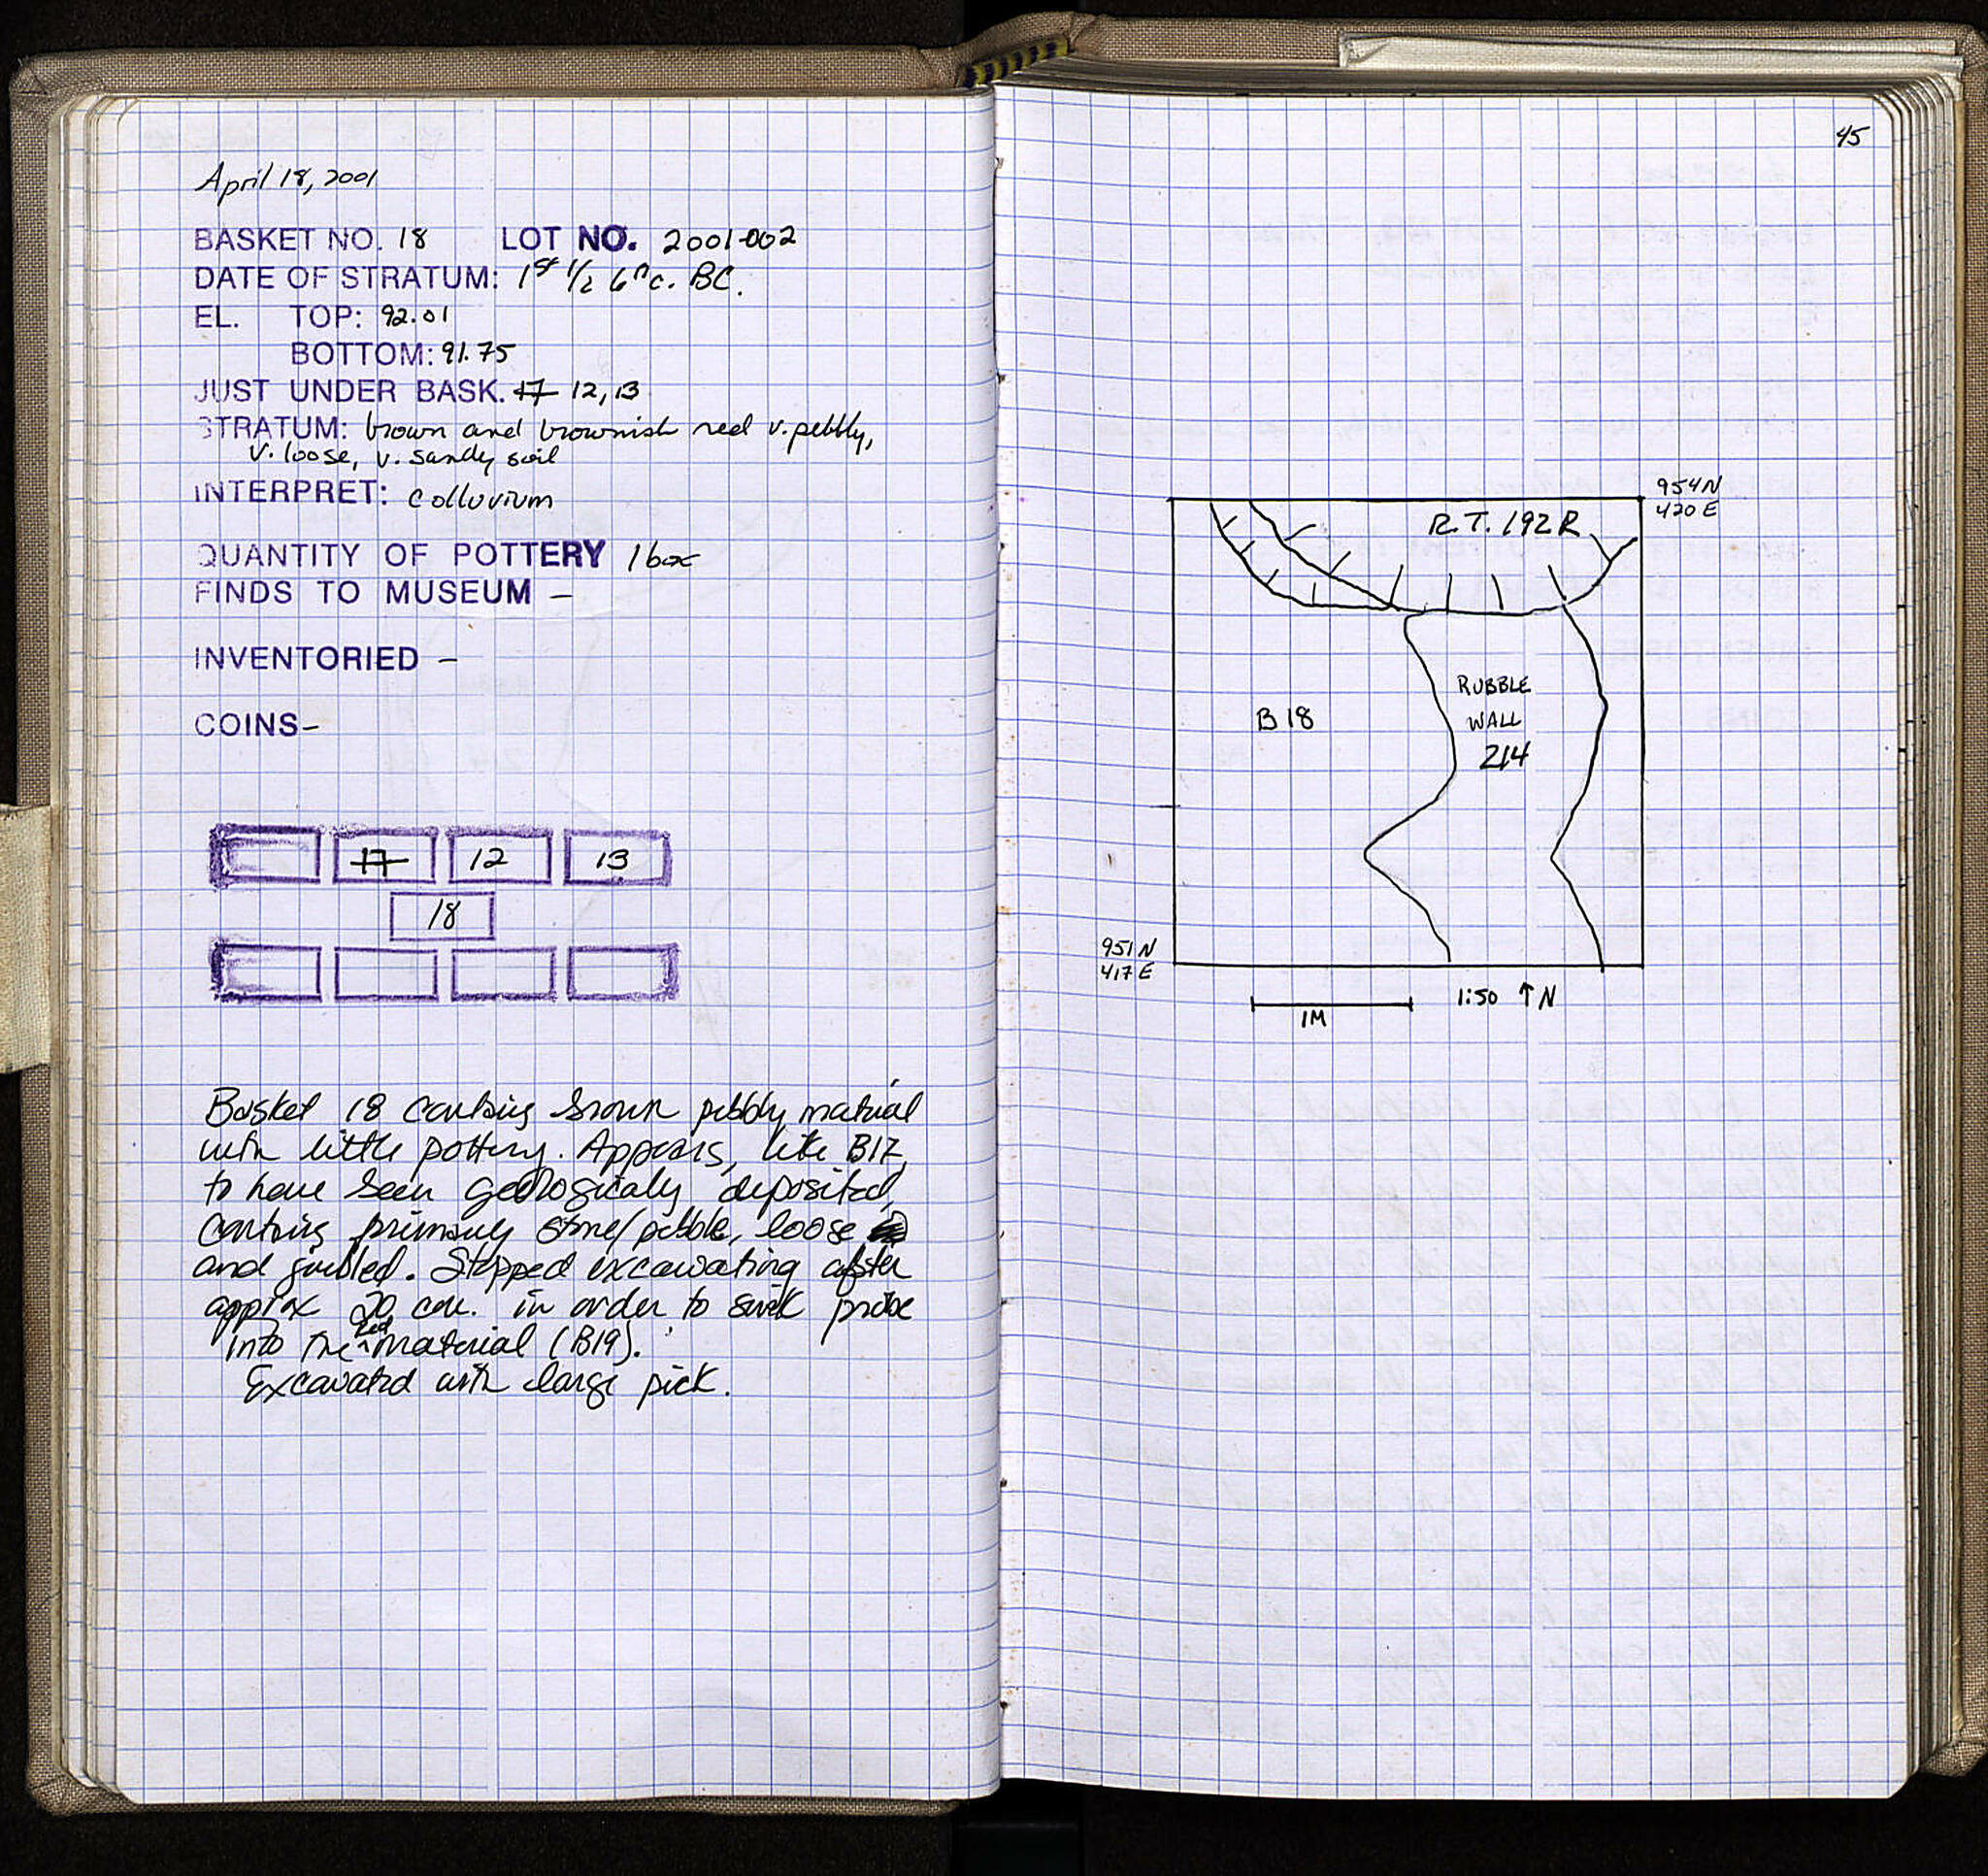 April 18, 2001
BASKET NO. 18 LOT NO. 2001-002
DATE OF STRATUM: 1st 1/2 6th c. BC.
EL. TOP: 92.01
BOTTOM: 91.75
JUST UNDER BASK. 17 12, 13
STRATUM: brown and brownish red v. pebbly,
v. loose, v. sandy soil
INTERPRET: colluvium
QUANTITY OF POTTERY 1 box
FINDS TO MUSEUM –
INVENTORIED –
COINS –
17 12 13
18
Basket 18 contains brown pebbly material
with little pottery. Appears, like B17,
to have been geologicaly deposited,
contains primarily stone/pebble, loose
and jumbled. Stopped excavating after
approx 20 cm. in order to sink probe
into the red material (B19).
Excavated with large pick.
45
954N
420E
R.T. 192R
RUBBLE
WALL
214
B 18
951N
417E
1:50 ↑N
1M